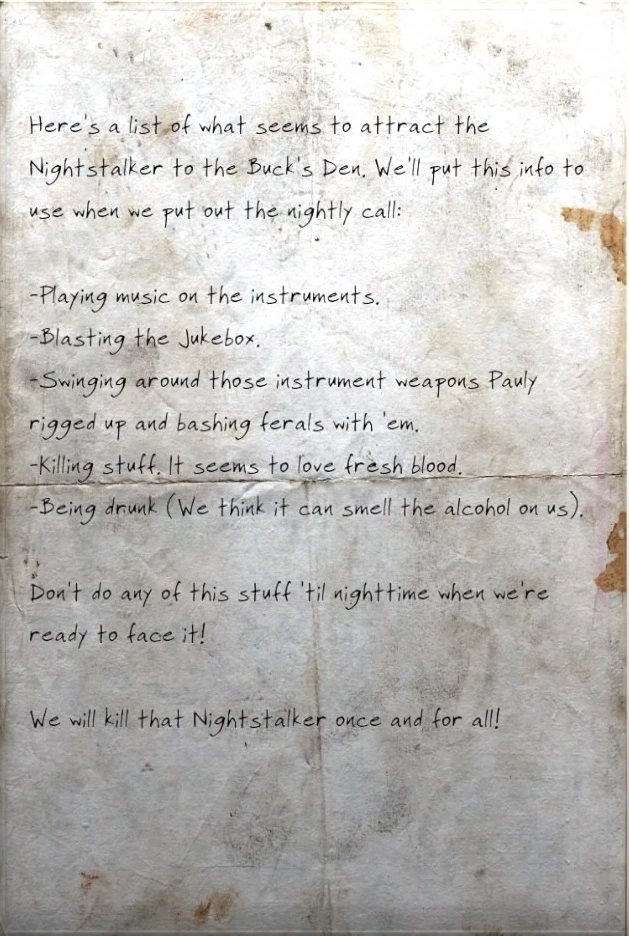 Here's a list of what seems to attract the
Nightstalker to the Buck's Den. We'll put this info to
use when we put out the nightly call:
-Playing music on the instruments.
-Blasting the Jukebox.
-Swinging around those instrument weapons Pauly
rigged up and bashing ferals with 'em.
-Killing stuff. It seems to love fresh blood.
-Being drunk (We think it can smell the alcohol on us).
Don't do any of this stuff 'til nighttime when we're
ready to face it!
We will kill that Nightstalker once and for all!